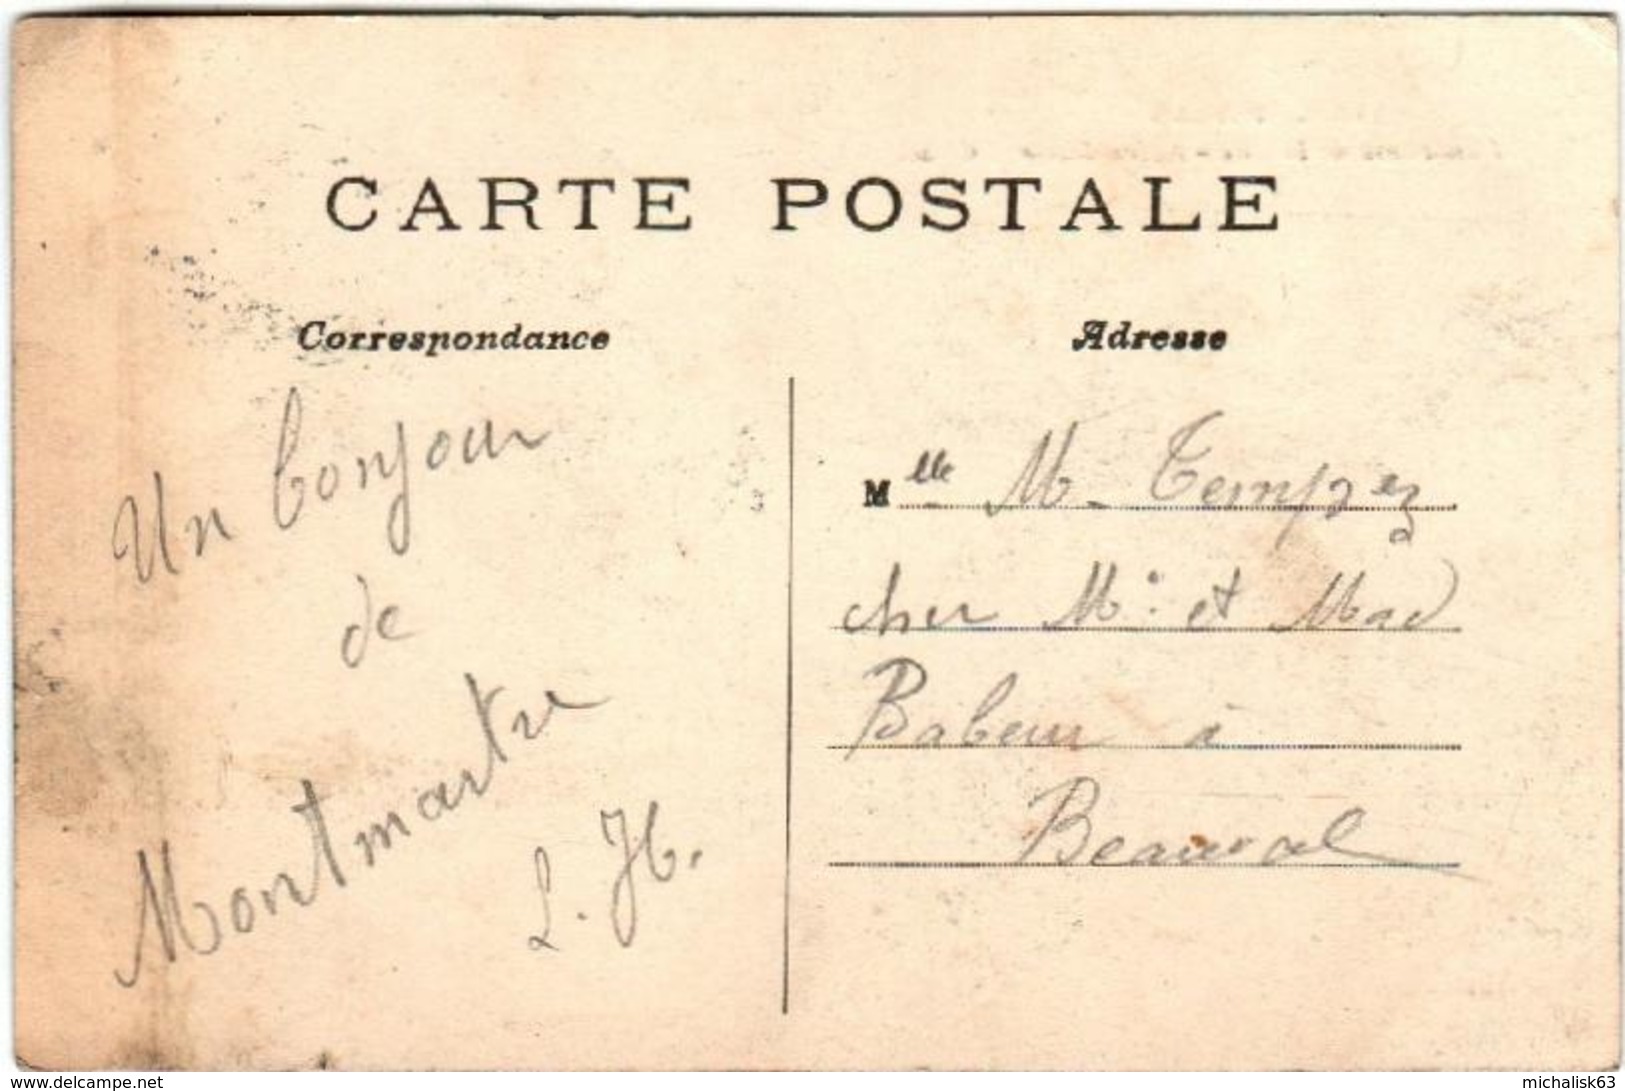 CARTE POSTALE
Correspondance
Adresse
Un bonjour
de
Montmartre
L. H.
Mlle M. Tempez
cher Mr et Mad
Babeur à
Beauval
www.delcampe.net
michalisk63